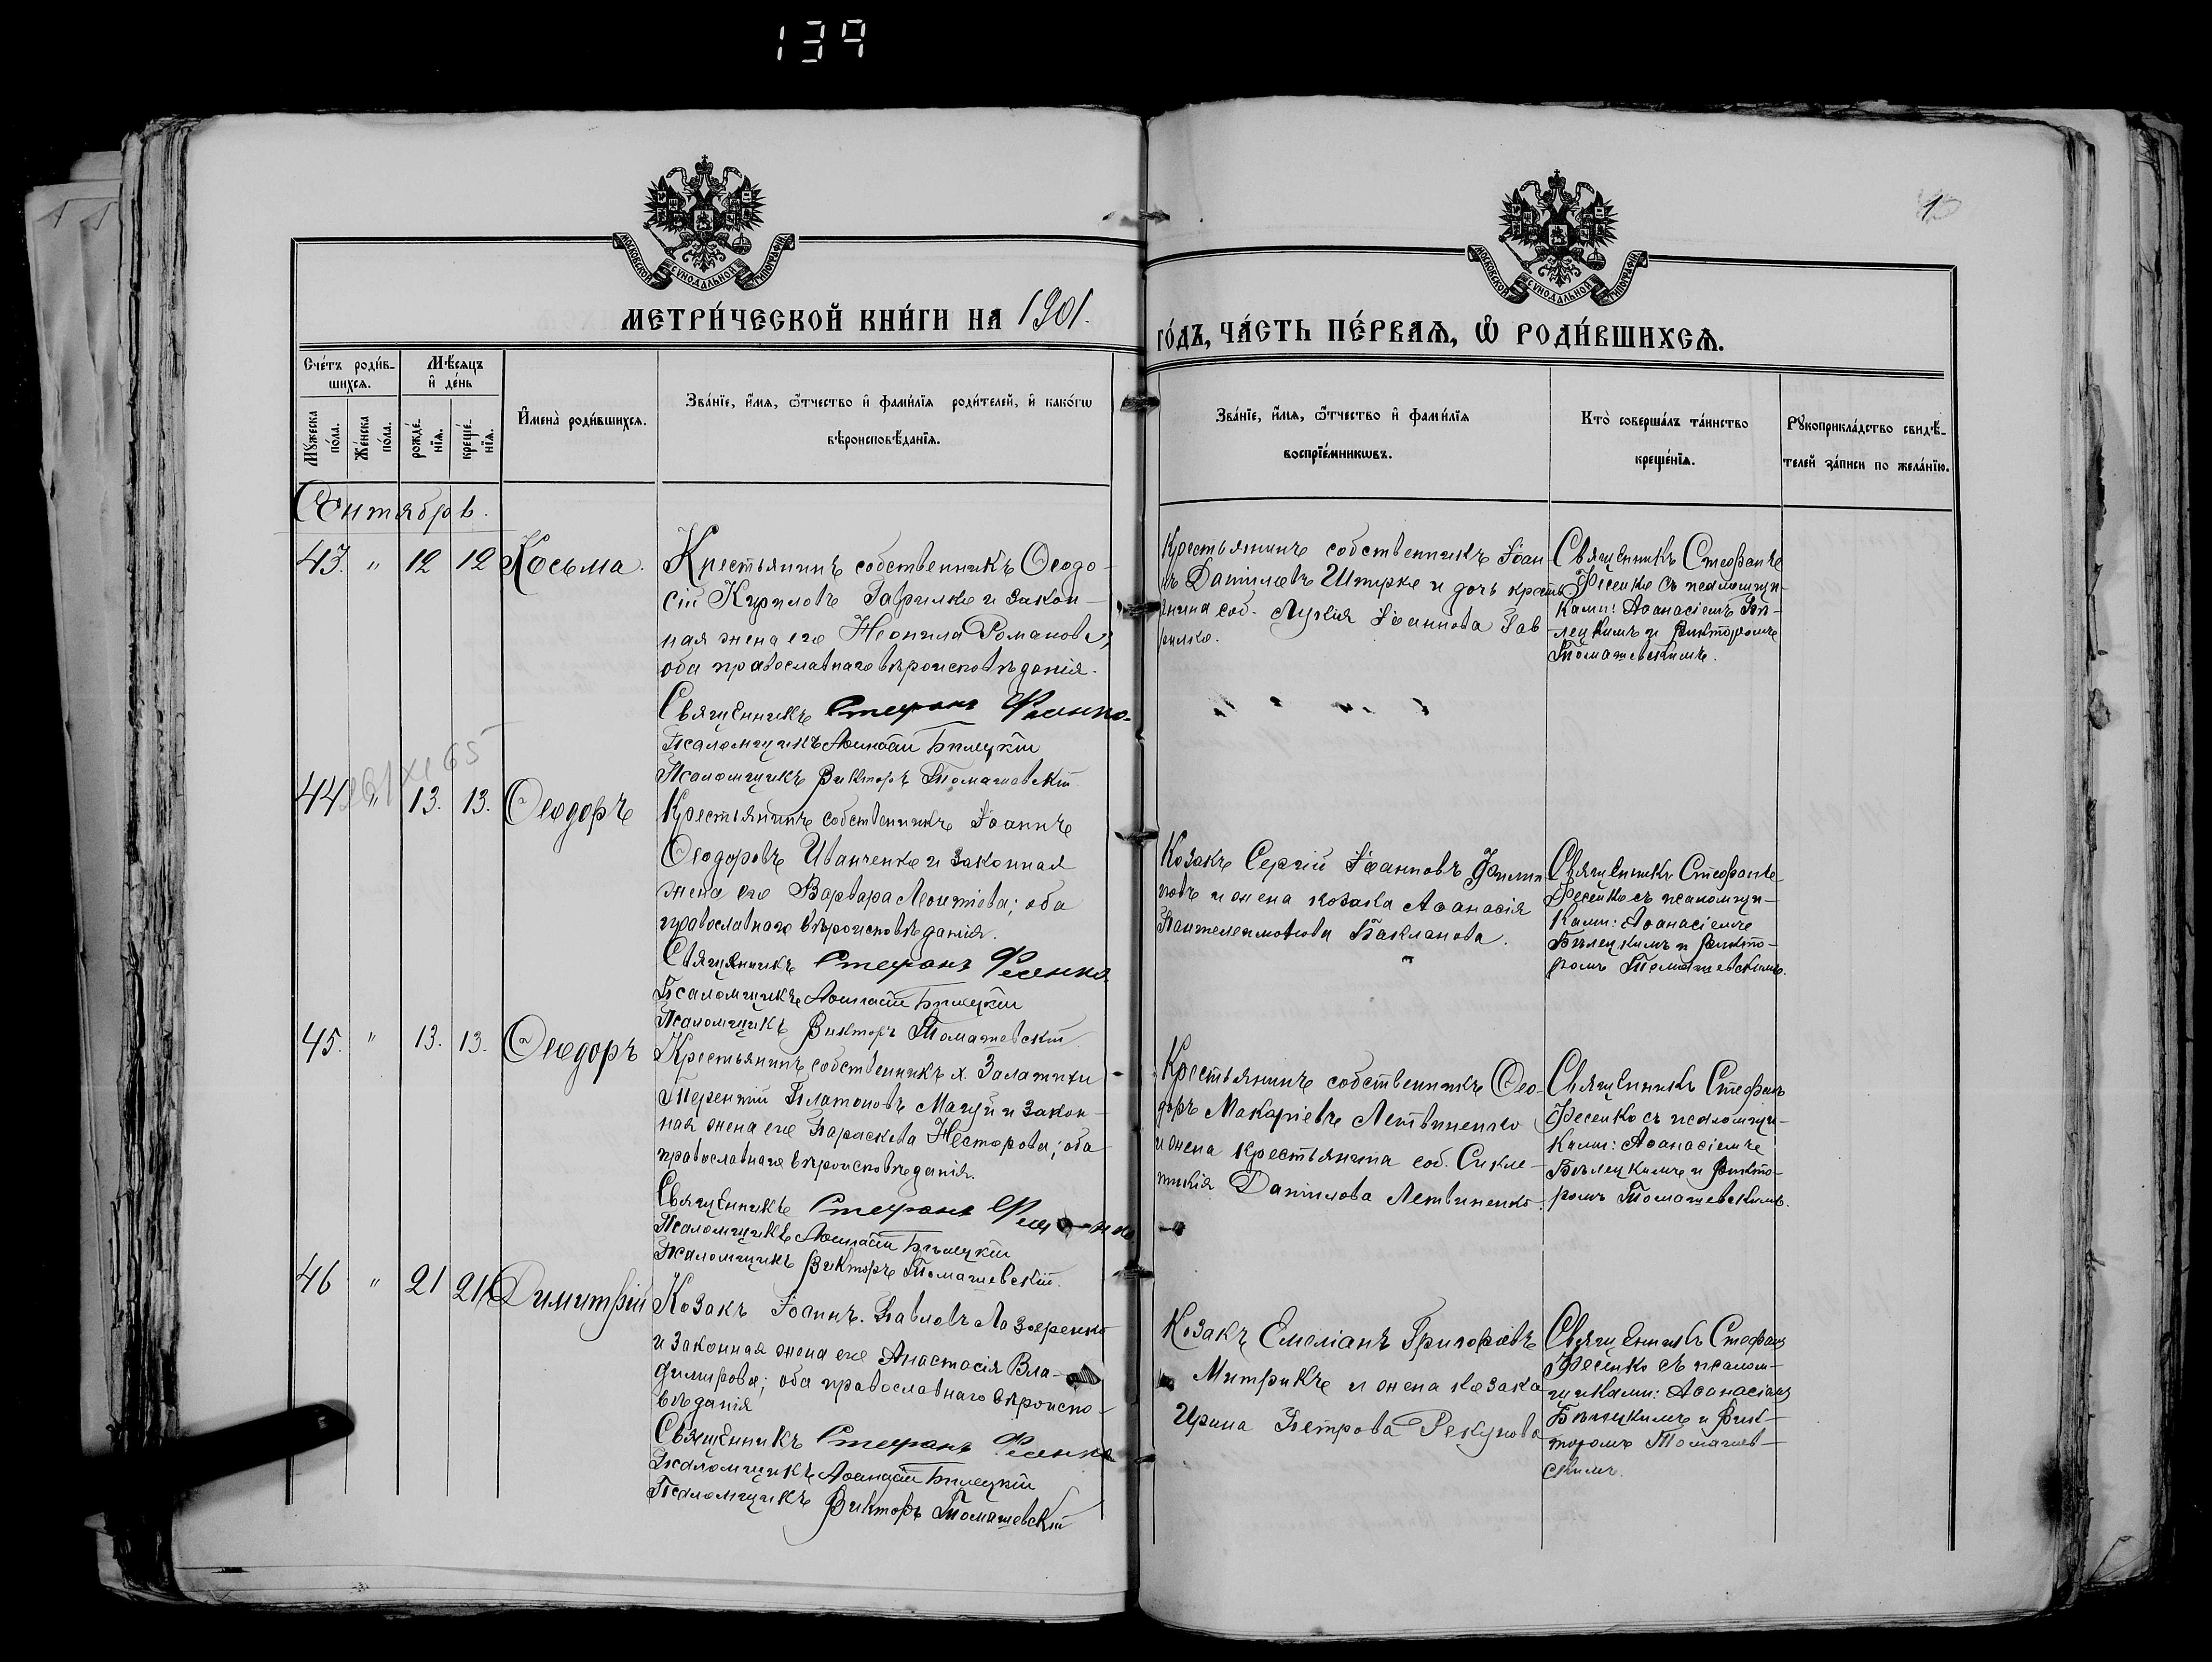 139
1
МОСКОВСКОЙ СѴНОДАЛЬНОЙ ТИПОГРАФІИ
МОСКОВСКОЙ СѴНОДАЛЬНОЙ ТИПОГРАФІИ
МЕТРИ́ЧЕСКОЙ КНИ́ГИ НА 1901.
ГО́ДЪ, ЧА́СТЬ ПЕ́РВАѦ, Ѽ РОДИ́ВШИХСѦ.
Сче́тъ роди́в-
шихся.
Мѣ́сяцъ
и҆ де́нь
Мꙋ́жеска
по́ла.
Же́нска
по́ла.
рожде́-
нїя.
креще́-
нїя.
И҆мена̀ роди́вшихся.
Зва́нїе, и҆́мя, ѻ҆́тчество и҆ фами́лїя роди́телей, и҆ како́гѡ
вѣроисповѣ́данїя.
Зва́нїе, и҆́мя, ѻ҆́тчество и҆ фами́лїя
воспрїе́мникѡвъ.
Кто̀ соверша́лъ та́инство
креще́нїя.
Рꙋкоприкла́дство свидѣ́-
телей за́писи по жела́нїю.
Сентябрь.
43. " 12 12 Косьма.
Крестьянинъ собственникъ Ѳеодо-
сій Кириловъ Гаврилко и закон-
ная жена его Неонила Романова;
оба православнаго вѣроисповѣданія.
Священникъ Стефанъ Фесенко
Псаломщикъ Аѳанасій Бѣлецкій
Псаломщикъ Викторъ Томашевскій
Крестьянинъ собственникъ Іоан-
нъ Даниловъ Штирке и дочь кресть-
янина соб. Лукія Іоаннова Гав-
рилко.
Священникъ Стефанъ
Фесенко съ псаломщи-
ками: Аѳанасіемъ Бѣ-
лецкимъ и Викторомъ
Томашевскимъ.
44 " 13. 13. Ѳеодоръ
Крестьянинъ собственникъ Іоаннъ
Ѳеодоровъ Иванченко и законная
жена его Варвара Леонтіева; оба
православнаго вѣроисповѣданія.
Священникъ Стефанъ Фесенко
Псаломщикъ Аѳанасій Бѣлецкій
Псаломщикъ Викторъ Томашевскій
Козакъ Сергій Іоанновъ Филип-
повъ и жена козака Аѳанасія
Пантелеимонова Бакланова.
Священникъ Стефанъ
Фесенко съ псаломщи-
ками: Аѳанасіемъ
Бѣлецкимъ и Викто-
ромъ Томашевскимъ.
45. " 13. 13. Ѳеодоръ
Крестьянинъ собственникъ х. Залатихи
Терентій Платоновъ Магуй и закон-
ная жена его Параскева Несторова; оба
православнаго вѣроисповѣданія.
Священникъ Стефанъ Фесенко
Псаломщикъ Аѳанасій Бѣлецкій
Псаломщикъ Викторъ Томашевскій.
Крестьянинъ собственникъ Ѳео-
доръ Макаріевъ Летвиненко
и жена крестьянина соб. Сикле-
тикія Данилова Летвиненко.
Священникъ Стефанъ
Фесенко съ псаломщи-
ками: Аѳанасіемъ
Бѣлецкимъ и Викто-
ромъ Томашевскимъ.
46 " 21 21 Димитрій
Козакъ Іоаннъ Павловъ Лазоренко
и законная жена его Анастасія Вла-
димирова; оба православнаго вѣроиспо-
вѣданія
Священникъ Стефанъ Фесенко
Псаломщикъ Аѳанасій Бѣлецкій
Псаломщикъ Викторъ Томашевскій
Козакъ Емеліанъ Григоріевъ
Митрикъ и жена козака
Ирина Петрова Рекунова
Священникъ Стефанъ
Фесенко съ псалом-
щиками: Аѳанасіемъ
Бѣлецкимъ и Вик-
торомъ Томашев-
скимъ.